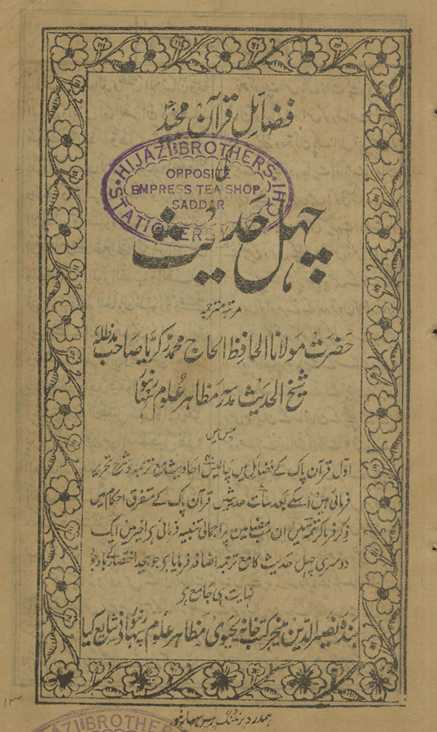 فضائل قرآن مجید
HIJAZI BROTHERS
OPPOSITE
EMPRESS TEA SHOP
SADDAR
STATIONERS
چہل حدیث
مرتبہ مترجمہ
حضرت مولانا الحافظ الحاج محمد زکریا صاحب مدظلہ
شیخ الحدیث مدرسہ مظاہر علوم سہارنپور
جس میں
اول قرآن پاک کے فضائل میں چالیس احادیث مع ترجمہ و شرح تحریر
فرمائی ہیں اسکے بعد سات حدیثیں قرآن پاک کے متفرق احکام میں
ذکر فرماکر تتمہ میں ان سب مضامین پر اجمالی تنبیہ فرمائی ہے اخیر میں ایک
دوسری چہل حدیث کا مع ترجمہ اضافہ فرمایا ہے جو بیحد اختصار کے باوجود
نہایت ہی جامع ہے
بندہ نصیر الدین منیجر کتب خانہ یحیوی مظاہر علوم سہارنپور نے شایع کیا
ہمدرد پرنٹنگ پریس سہارنپور
HIJAZI BROTHERS